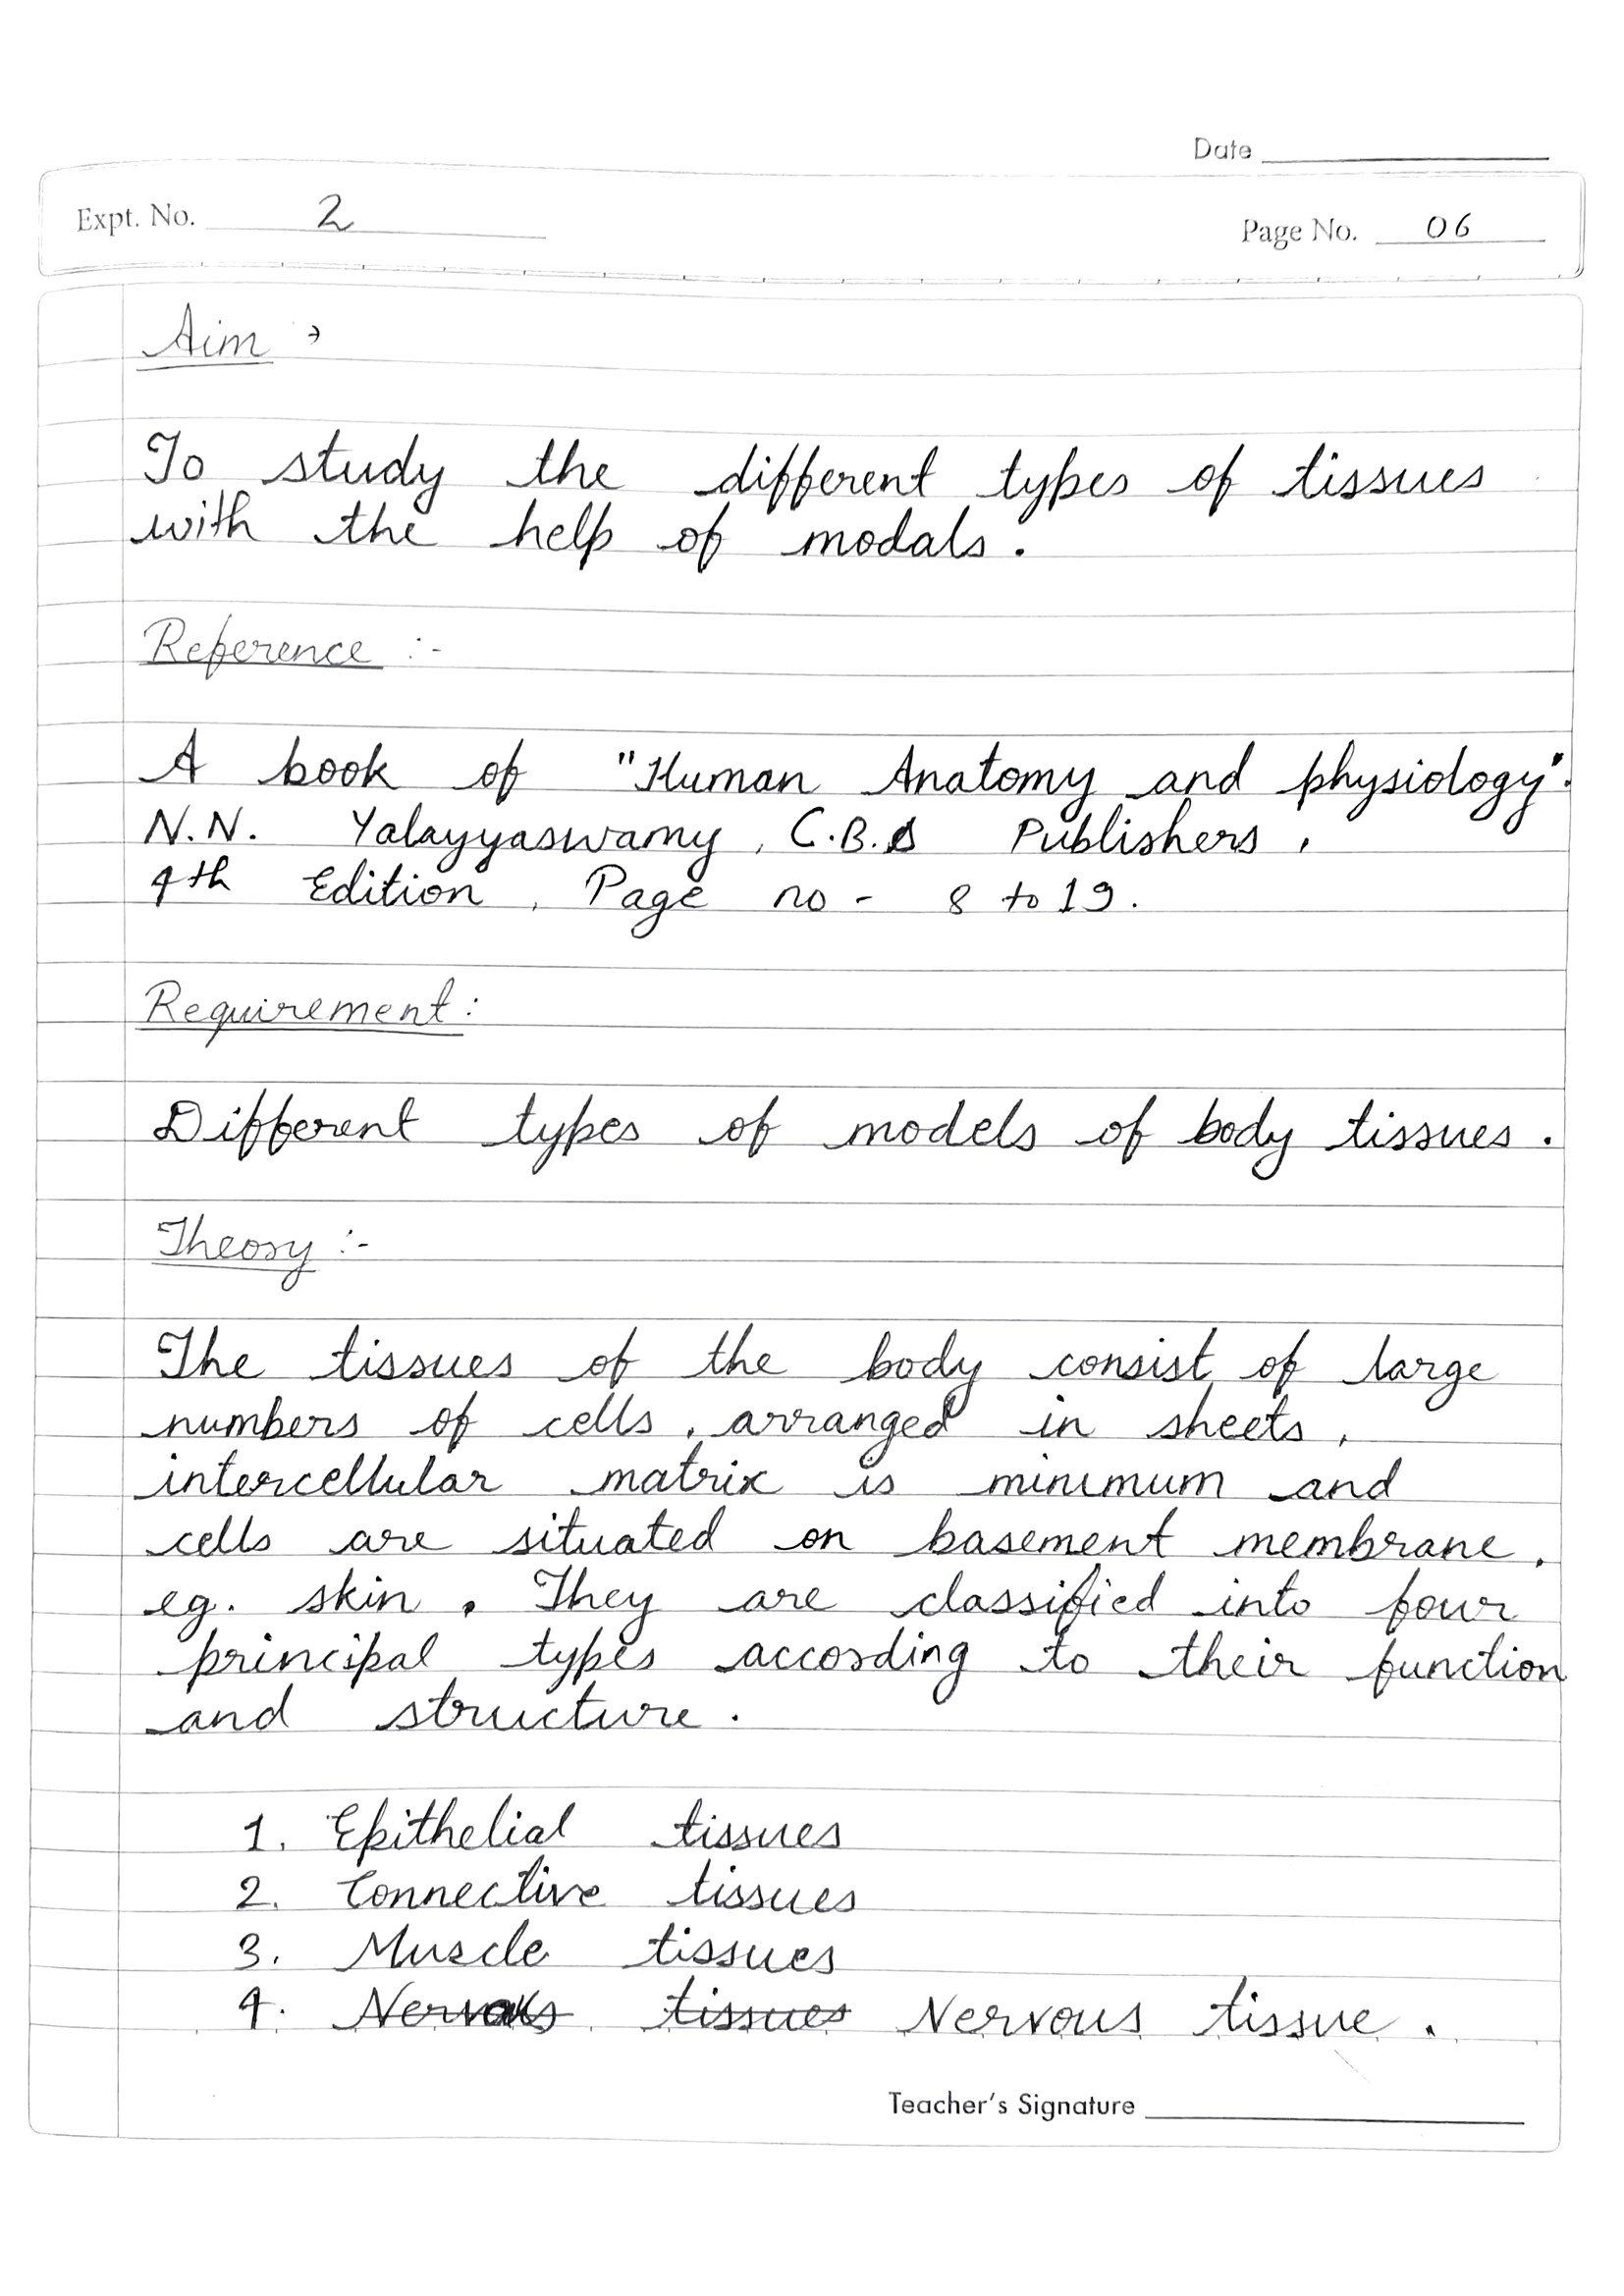 Date
Expt. No. 2
Page No. 06
Aim →
To study the different types of tissues
with the help of modals.
Reference :-
A book of "Human Anatomy and physiology".
N.N. Yalayyaswamy, C.B.S Publishers,
4th Edition, Page no - 8 to 19.
Requirement:
Different types of models of body tissues.
Theory :-
The tissues of the body consist of large
numbers of cells, arranged in sheets,
intercellular matrix is minimum and
cells are situated on basement membrane.
eg. skin. They are classified into four
principal types according to their function
and structure.
1. Epithelial tissues
2. Connective tissues
3. Muscle tissues
4. tissues Nervous tissue.
Teacher's Signature